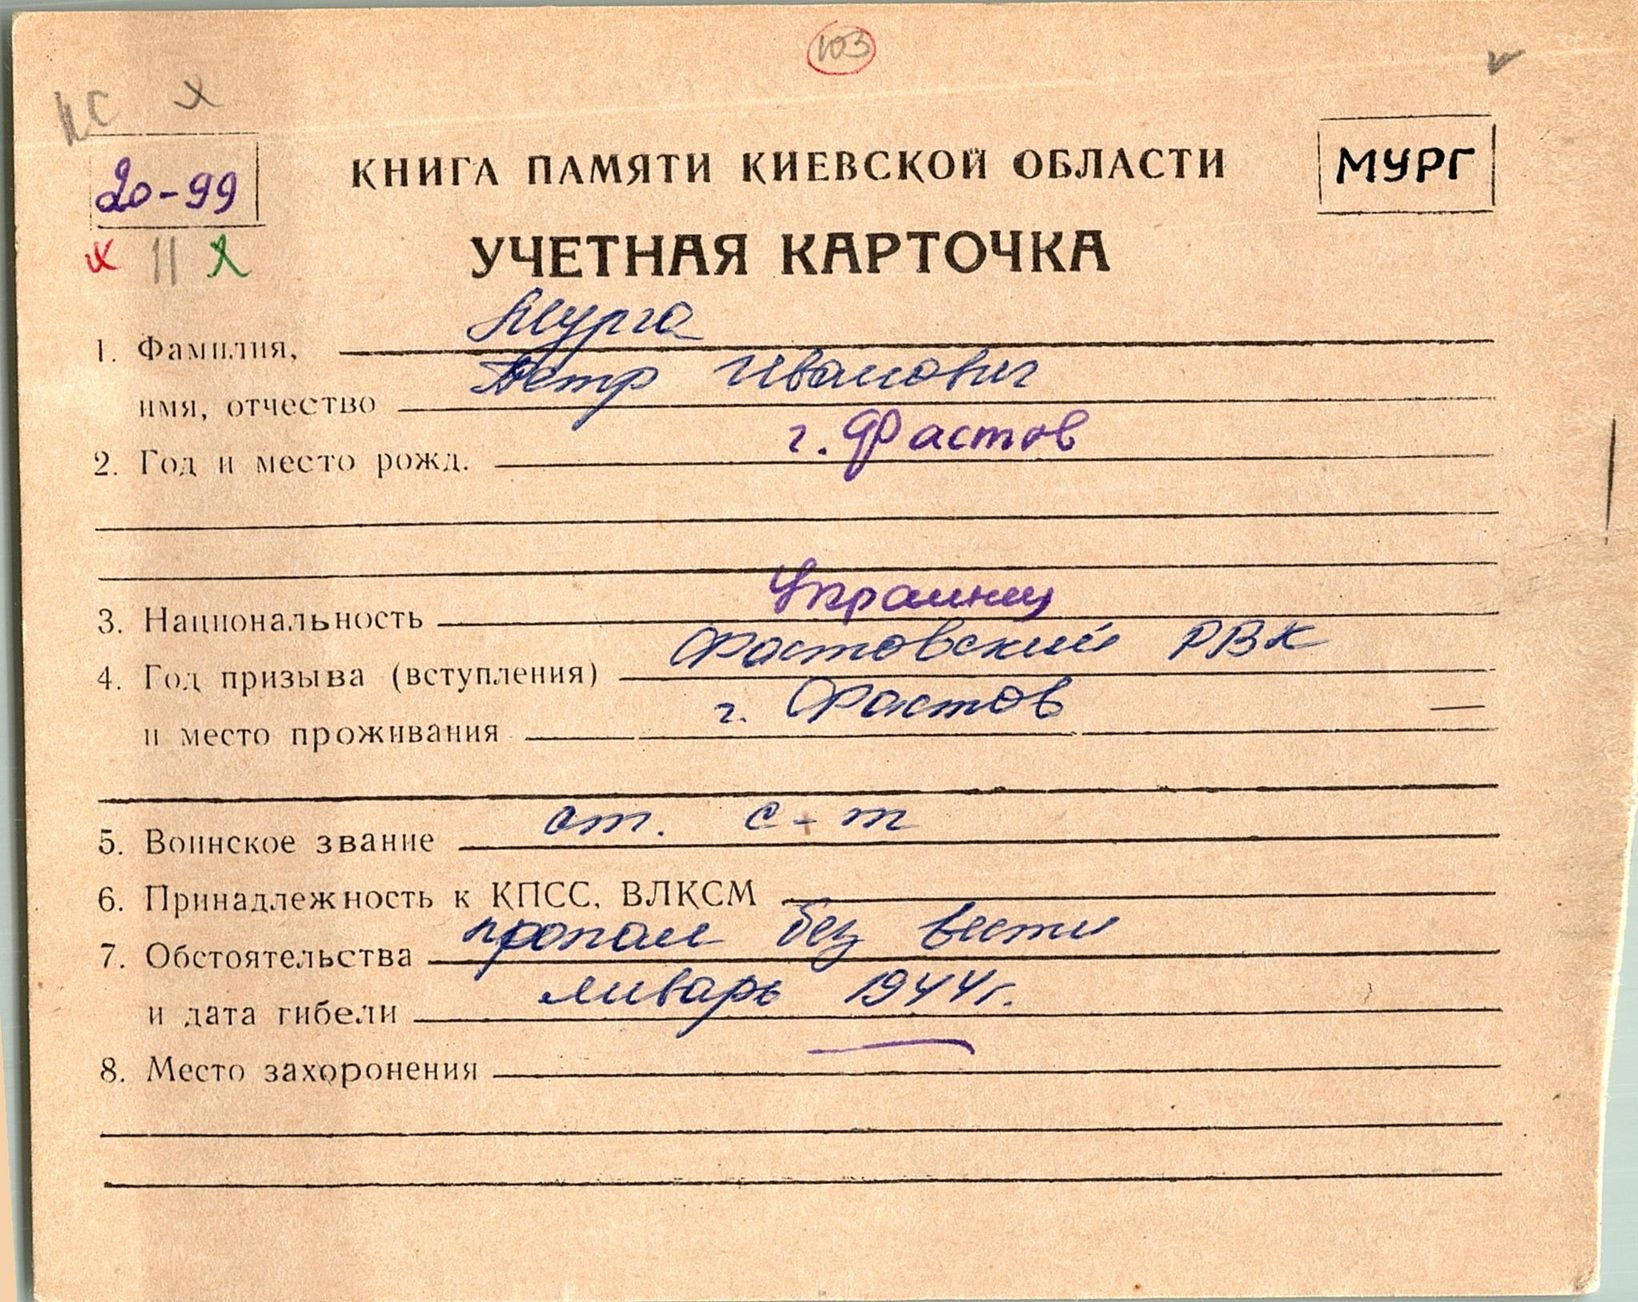 103
КС х
20-99
КНИГА ПАМЯТИ КИЕВСКОЙ ОБЛАСТИ
МУРГ
х 11 х
УЧЕТНАЯ КАРТОЧКА
1. Фамилия, Мурга
имя, отчество Петр Иванович
2. Год и место рожд. г. Фастов
3. Национальность Украинец
4. Год призыва (вступления) Фастовский РВК
и место проживания г. Фастов —
5. Воинское звание ст. с-т
6. Принадлежность к КПСС, ВЛКСМ
7. Обстоятельства пропал без вести
и дата гибели январь 1944г.
8. Место захоронения